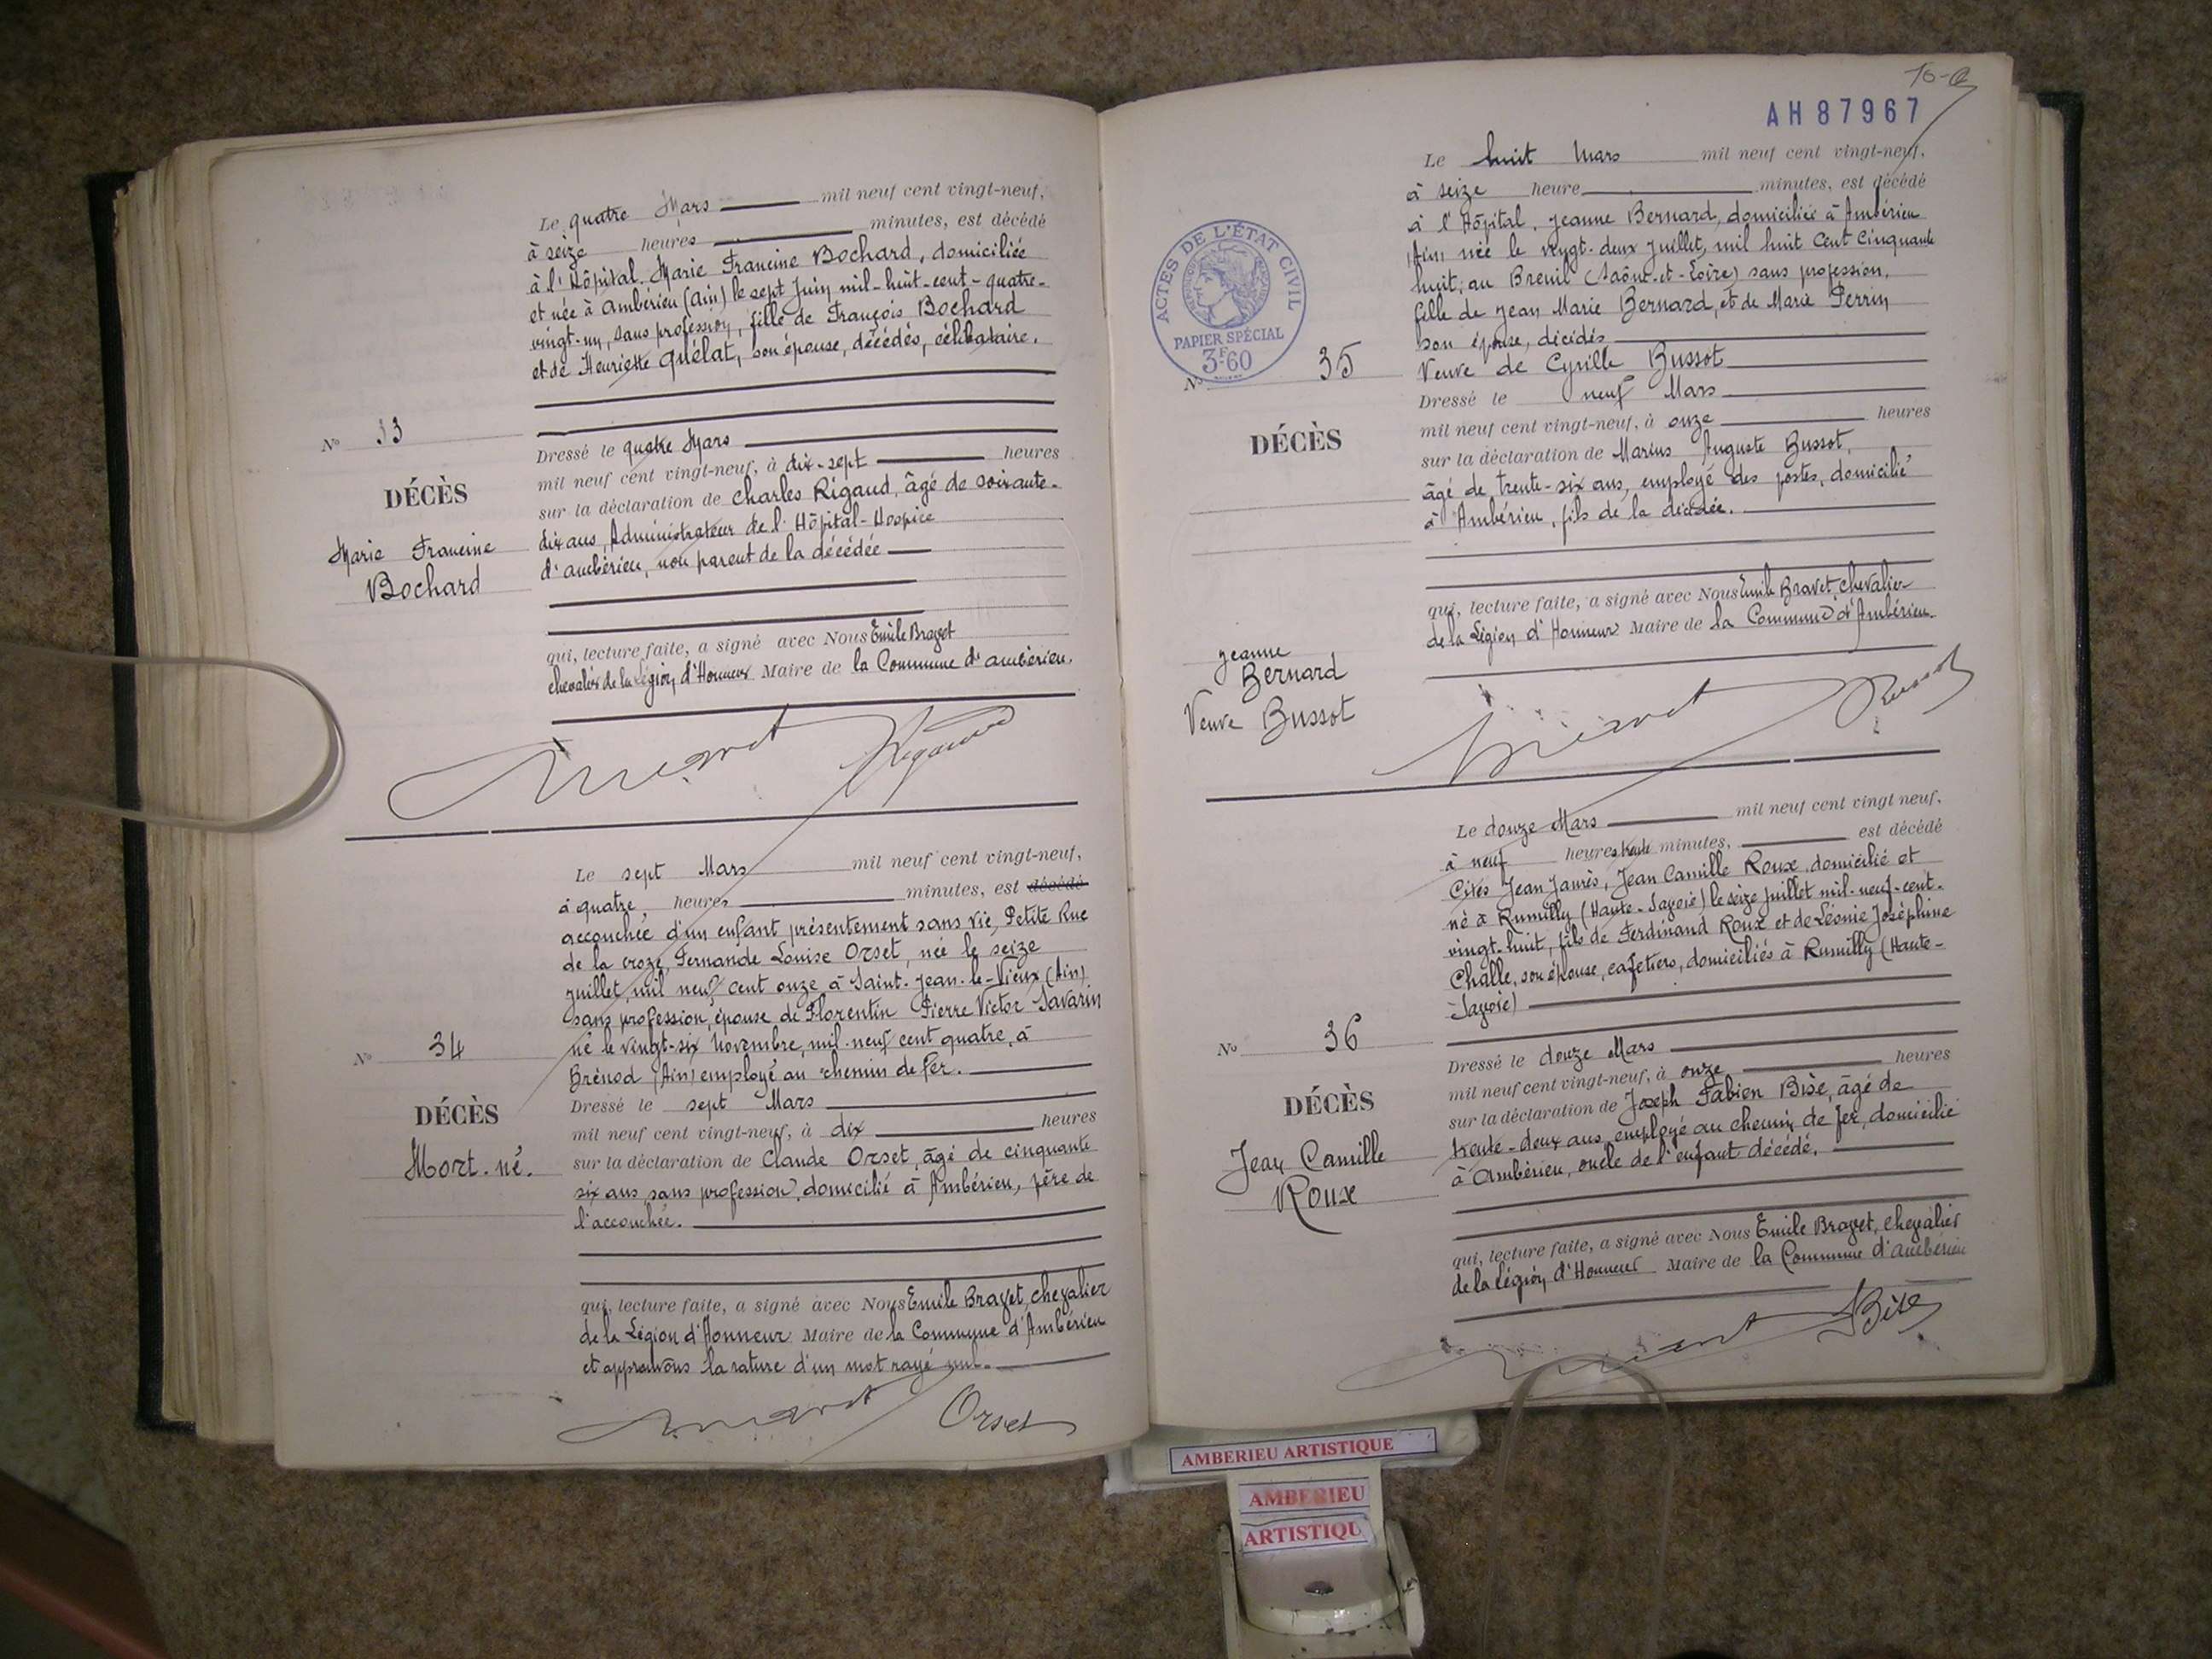 Le quatre Mars mil neuf cent vingt-neuf,
à seize heures minutes, est décédé
à l'Hôpital. Marie Francine Bochard, domiciliée
et née à Ambérieu (Ain) le sept Juin mil-huit-cent-quatre-
vingt-un, sans profession, fille de François Bochard
et de Henriette Quélat, son épouse, décédés, célibataire.
N° 33
DÉCÈS
Marie Francine
Bochard
Dressé le quatre Mars
mil neuf cent vingt-neuf, à dix-sept heures
sur la déclaration de Charles Rigaud, âgé de soixante-
dix ans, Administrateur de l'Hôpital-Hospice
d'ambérieu, non parent de la décédée
qui, lecture faite, a signé avec Nous Emile Bravet
chevalier de la Légion d'Honneur Maire de la Commune d'ambérieu.
Le sept Mars mil neuf cent vingt-neuf,
à quatre heures minutes, est décédé
accouchée d'un enfant présentement sans vie, Petite Rue
de la croze, Fernande Louise Orset, née le seize
juillet, mil neuf cent onze à Saint-Jean-le-Vieux (Ain)
sans profession, épouse de Florentin Pierre Victor Savarin
né le vingt-six Novembre, mil neuf cent quatre, à
Brénod (Ain) employé au chemin de Fer.
N° 34
DÉCÈS
Mort-né.
Dressé le sept Mars
mil neuf cent vingt-neuf, à dix heures
sur la déclaration de Claude Orset, âgé de cinquante
six ans, sans profession, domicilié à Ambérieu, père de
l'accouchée.
qui, lecture faite, a signé avec Nous Emile Bravet, chevalier
de la Légion d'Honneur Maire de la Commune d'Ambérieu
et approuvons la rature d'un mot rayé nul.
Orset
AH87967
Le huit Mars mil neuf cent vingt-neuf,
à seize heure minutes, est décédé
à l'Hôpital, Jeanne Bernard, domiciliée à Ambérieu
(Ain) née le vingt-deux Juillet, mil huit cent cinquante
huit, au Breuil (Saône-et-Loire) sans profession,
fille de Jean Marie Bernard, et de Marie Perrin
son épouse, décédés
Veuve de Cyrille Bussot
ACTES DE L'ÉTAT CIVIL
PAPIER SPÉCIAL
3F60
N° 35
DÉCÈS
Jeanne
Bernard
Veuve Bussot
Dressé le neuf Mars
mil neuf cent vingt-neuf, à onze heures
sur la déclaration de Marius Auguste Bussot,
âgé de trente-six ans, employé des postes, domicilié
à Ambérieu, fils de la décédée.
qui, lecture faite, a signé avec Nous Emile Bravet, chevalier
de la Légion d'Honneur Maire de la Commune d'Ambérieu
Le douze Mars mil neuf cent vingt neuf,
à neuf heures trente minutes, est décédé
Cités Jean Jaurès, Jean Camille Roux, domicilié et
né à Rumilly (Haute-Savoie) le seize Juillet mil-neuf-cent-
vingt-huit, fils de Ferdinand Roux et de Léonie Joséphine
Challe, son épouse, cafetiers, domiciliés à Rumilly (Haute-
-Savoie)
N° 36
DÉCÈS
Jean Camille
Roux
Dressé le douze Mars
mil neuf cent vingt-neuf, à onze heures
sur la déclaration de Joseph Fabien Bise, âgé de
trente-deux ans, employé au chemin de fer, domicilié
à Ambérieu, oncle de l'enfant décédé.
qui, lecture faite, a signé avec Nous Emile Bravet, chevalier
de la Légion d'Honneur Maire de la Commune d'ambérieu
Bise
AMBERIEU ARTISTIQUE
AMBERIEU
ARTISTIQU